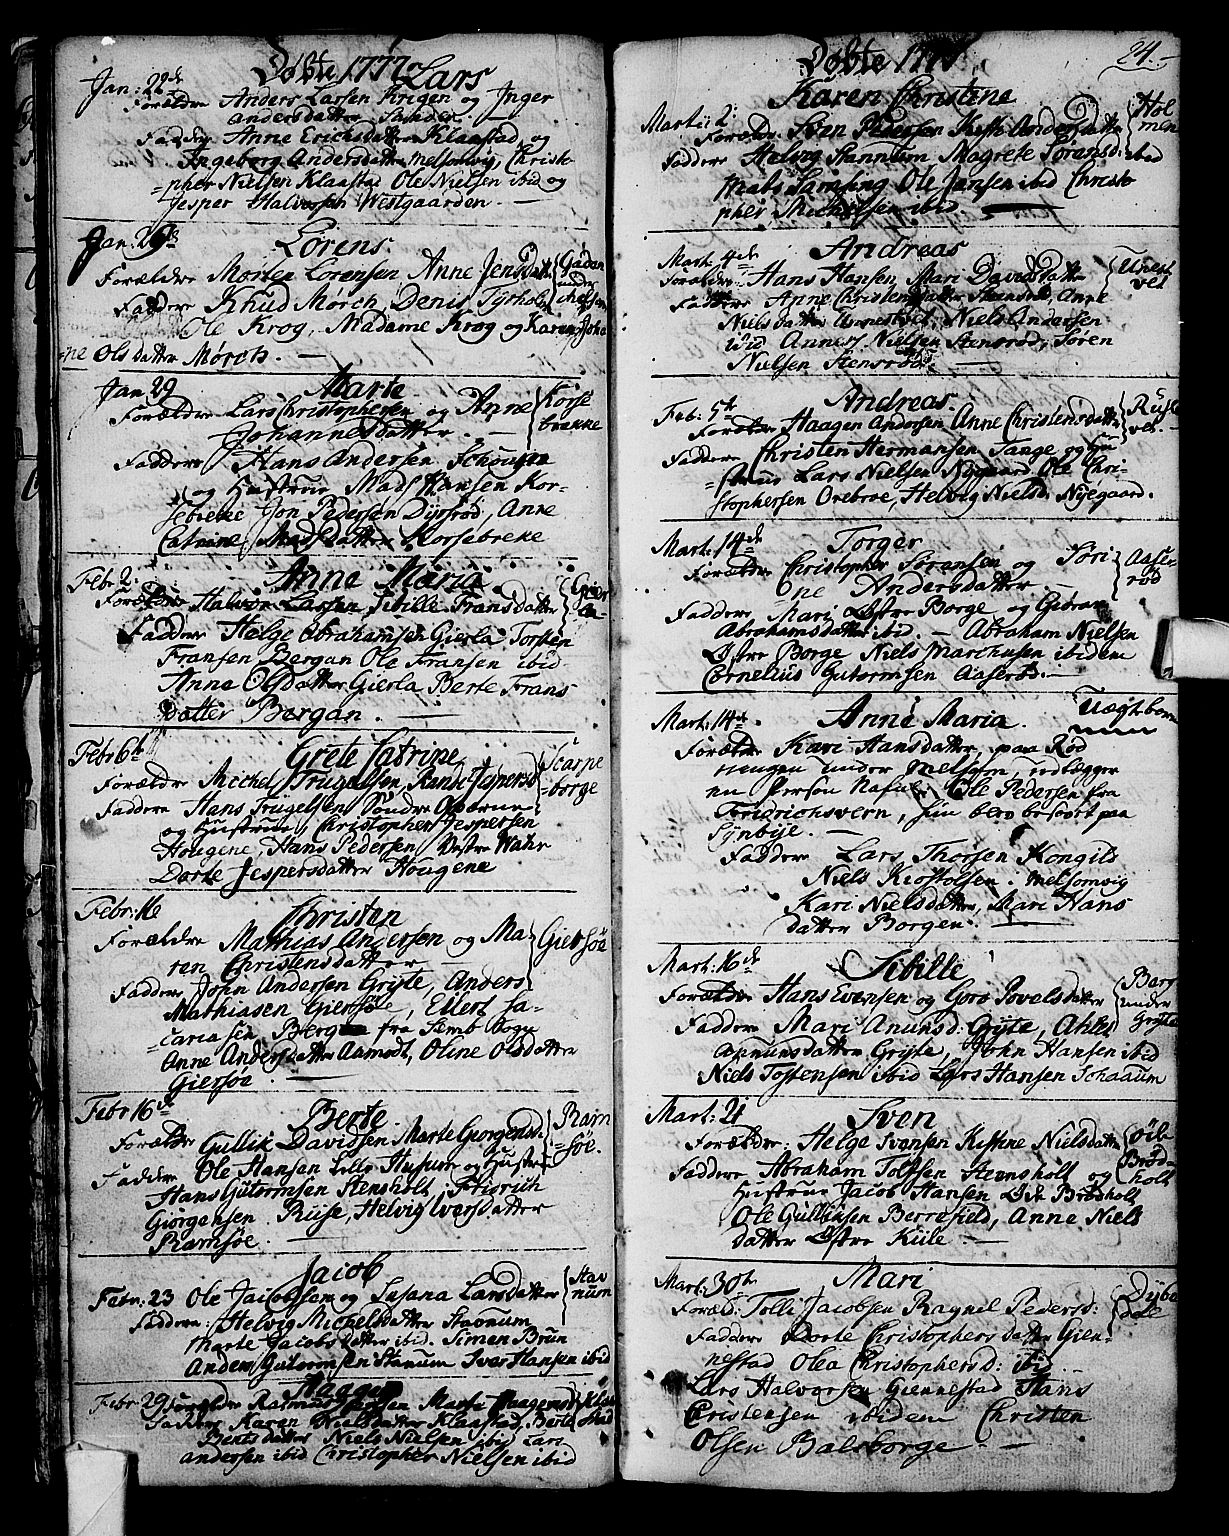 Døbte 1777
Jan: 22de Lars
Forældre Anders Larsen Krigen og Inger
andersdatter
Faddre Anne Ericksdatter Klaastad og
Ingeborg Andersdatter melsomvig, Christo-
=pher Nielsen Klaastad Ole Nielsen ibid og
Jesper Halvorsen Westgaarden. —
Jan. Lorens.
Forældre Morten Lorensen Anne Jensdatt.
Faddre Knud Mørch Denis Tyrholm
Ole Krog, Madame Krog og Karen Joha
ne Olsdatter Mørch. —
Jan 29 Marte
Forældre Lars Christophersen og Anne Korse
Johannesdatter. — brække
Faddere Hans Andersen
og Hustrue Mads Hansen Kor-
sebreke Jon Pedersen Dyrsrød, Anne
Catrine Madsdatter Korsebreke
Febr: 2. Anna Maria
Forældre Halvor Larsen Sibille Fransdatter Gier
Faddere Helge Abrahamsen Gierla Torsten la
Fransen Bergan Ole Fransen ibid
Anne Olsdatter Gierla Berte Frans
datter Bergan. —
Febr 6te Grete Catrine
Forældre Michel Trugelsen, Rande Jespersd Scarpe
Faddere Hans Trugelsen Søndre =borge
og Hustrue, Christopher Jespersen
Hougene, Hans Pedersen Vestre Wahr
Dorte Jespersdatter Hougene
Febr: 16 Christen
Forældre Mathias Andersen og Ma Giersøe
ren Christensdatter
Faddere John Andersen Gryte, Anders
Mathiasen Giersøe, Ellert Sa-
=cariasen Berg fra Semb Sogn
Anne Andersdatter Aamodt, Oline Olsdatter
Giersøe. —
Febr 16de Berte Ram
Forældre Gullik Davidsen Marte Georgensd: =søe.
Faddere Ole Hansen Lille Husum og Hustru
Hans Gutormsen Stensholt, Fridrich
Giörgensen Ruse, Helvig Iversdatter
Ramsøe. —
Jacob
Febr: 23 Ole Jacobsen og Susana Larsdatter Stav
Faddere: Helvig Michelsdatter Stavnum num
Marte Jacobsdatter ibid. Simen Brun
Anders Gutormsen Stanum Iver Hansen ibid
Febr: 29 Haagen
Forældre Rasmus Marte Haagensd
Faddere Karen Nielsdatter Klaastad, Berte
Bentsdatter Niels Nielsen ibid Lars
andersen ibid Christopher Nielsen ibid
Døbte 1777. 24. —
Karen Christine
Marti: 2: Hol
Forældre. Sven Pedersen Kisti Andersdatter men
Faddere Helvig Stannum Magrete Sørensd: ibid
Mats Ole Jansen ibid Christo
pher Michelsen ibid —
Mart. 4de Andreas
Forældre Hans Hansen, Mari Davidsdatter
Faddere Anne Christensdatter Stensrød, Anne
Nielsdatter Niels Andersen
ibid Anners Nielsen Stensrød, Søren
Nielsen Stensrød. —
Feb: 5t Andreas.
Forældre Haagen Andersen Anne Christensdatter
Faddere Christen Hermansen Tange og Hu
strue Lars Nielsen Nygaard Ole Chri-
stophersen Orebroe, Helvig Nielsd: Nyegaard.
Mart: 14de Torger
Forældre Christopher Sørensen og Siri Aase
One Andersdatter. — rød
Faddere Mari Østre Borge og Giøran
Abrahamsdatter ibid. — Abraham Nielsen
Østre Borge Niels Marchusen ibidem
Cornelius Gutormsen Aaserød. —
Mart: 14de. Anne Maria. Uægtebarn
Forældre Kari Hansdatter, paa Rød
under Melsom, udlægger
en Person Nafnl: Ole Pedersen fra
Fridrichsvern, hun blev besovet paa
Synbye. —
Faddere Lars Thorsen Kongils
Niels Kiostolsen. melsomvig
Kari Nielsdatter, Mari Hans
datter Borgen. —
Mart: 16de Sibille
Forældre Hans Evensen og Goro Povelsdatter
under
Faddere Mari Amunsd: Gryte, Gryte
Amunsdatter Gryte, John Hansen ibid
Niels Tostensen ibid Lars Hansen Schaaum
Mart: 21 Sven
Forældre: Helge Svensen Kistine Nielsdatter
Faddere Abraham Tolfsen Stensholt og Brød-
Hustrue Jacob Hansen Brødholt holt
Ole Gullicksen Berrefield, Anne Niels
datter Østre Kiile —
Mart: 30te Mari Dybe
Foræld: Tolli Jacobsen Ragnel Pedersd: dal
Faddere Dorte Christophersdatter Gien-
nestad Olea Christophersd: ibid
Lars Halvorsen Giennestad Hans
Christensen ibidem Christen
Olsen Balsborge. —